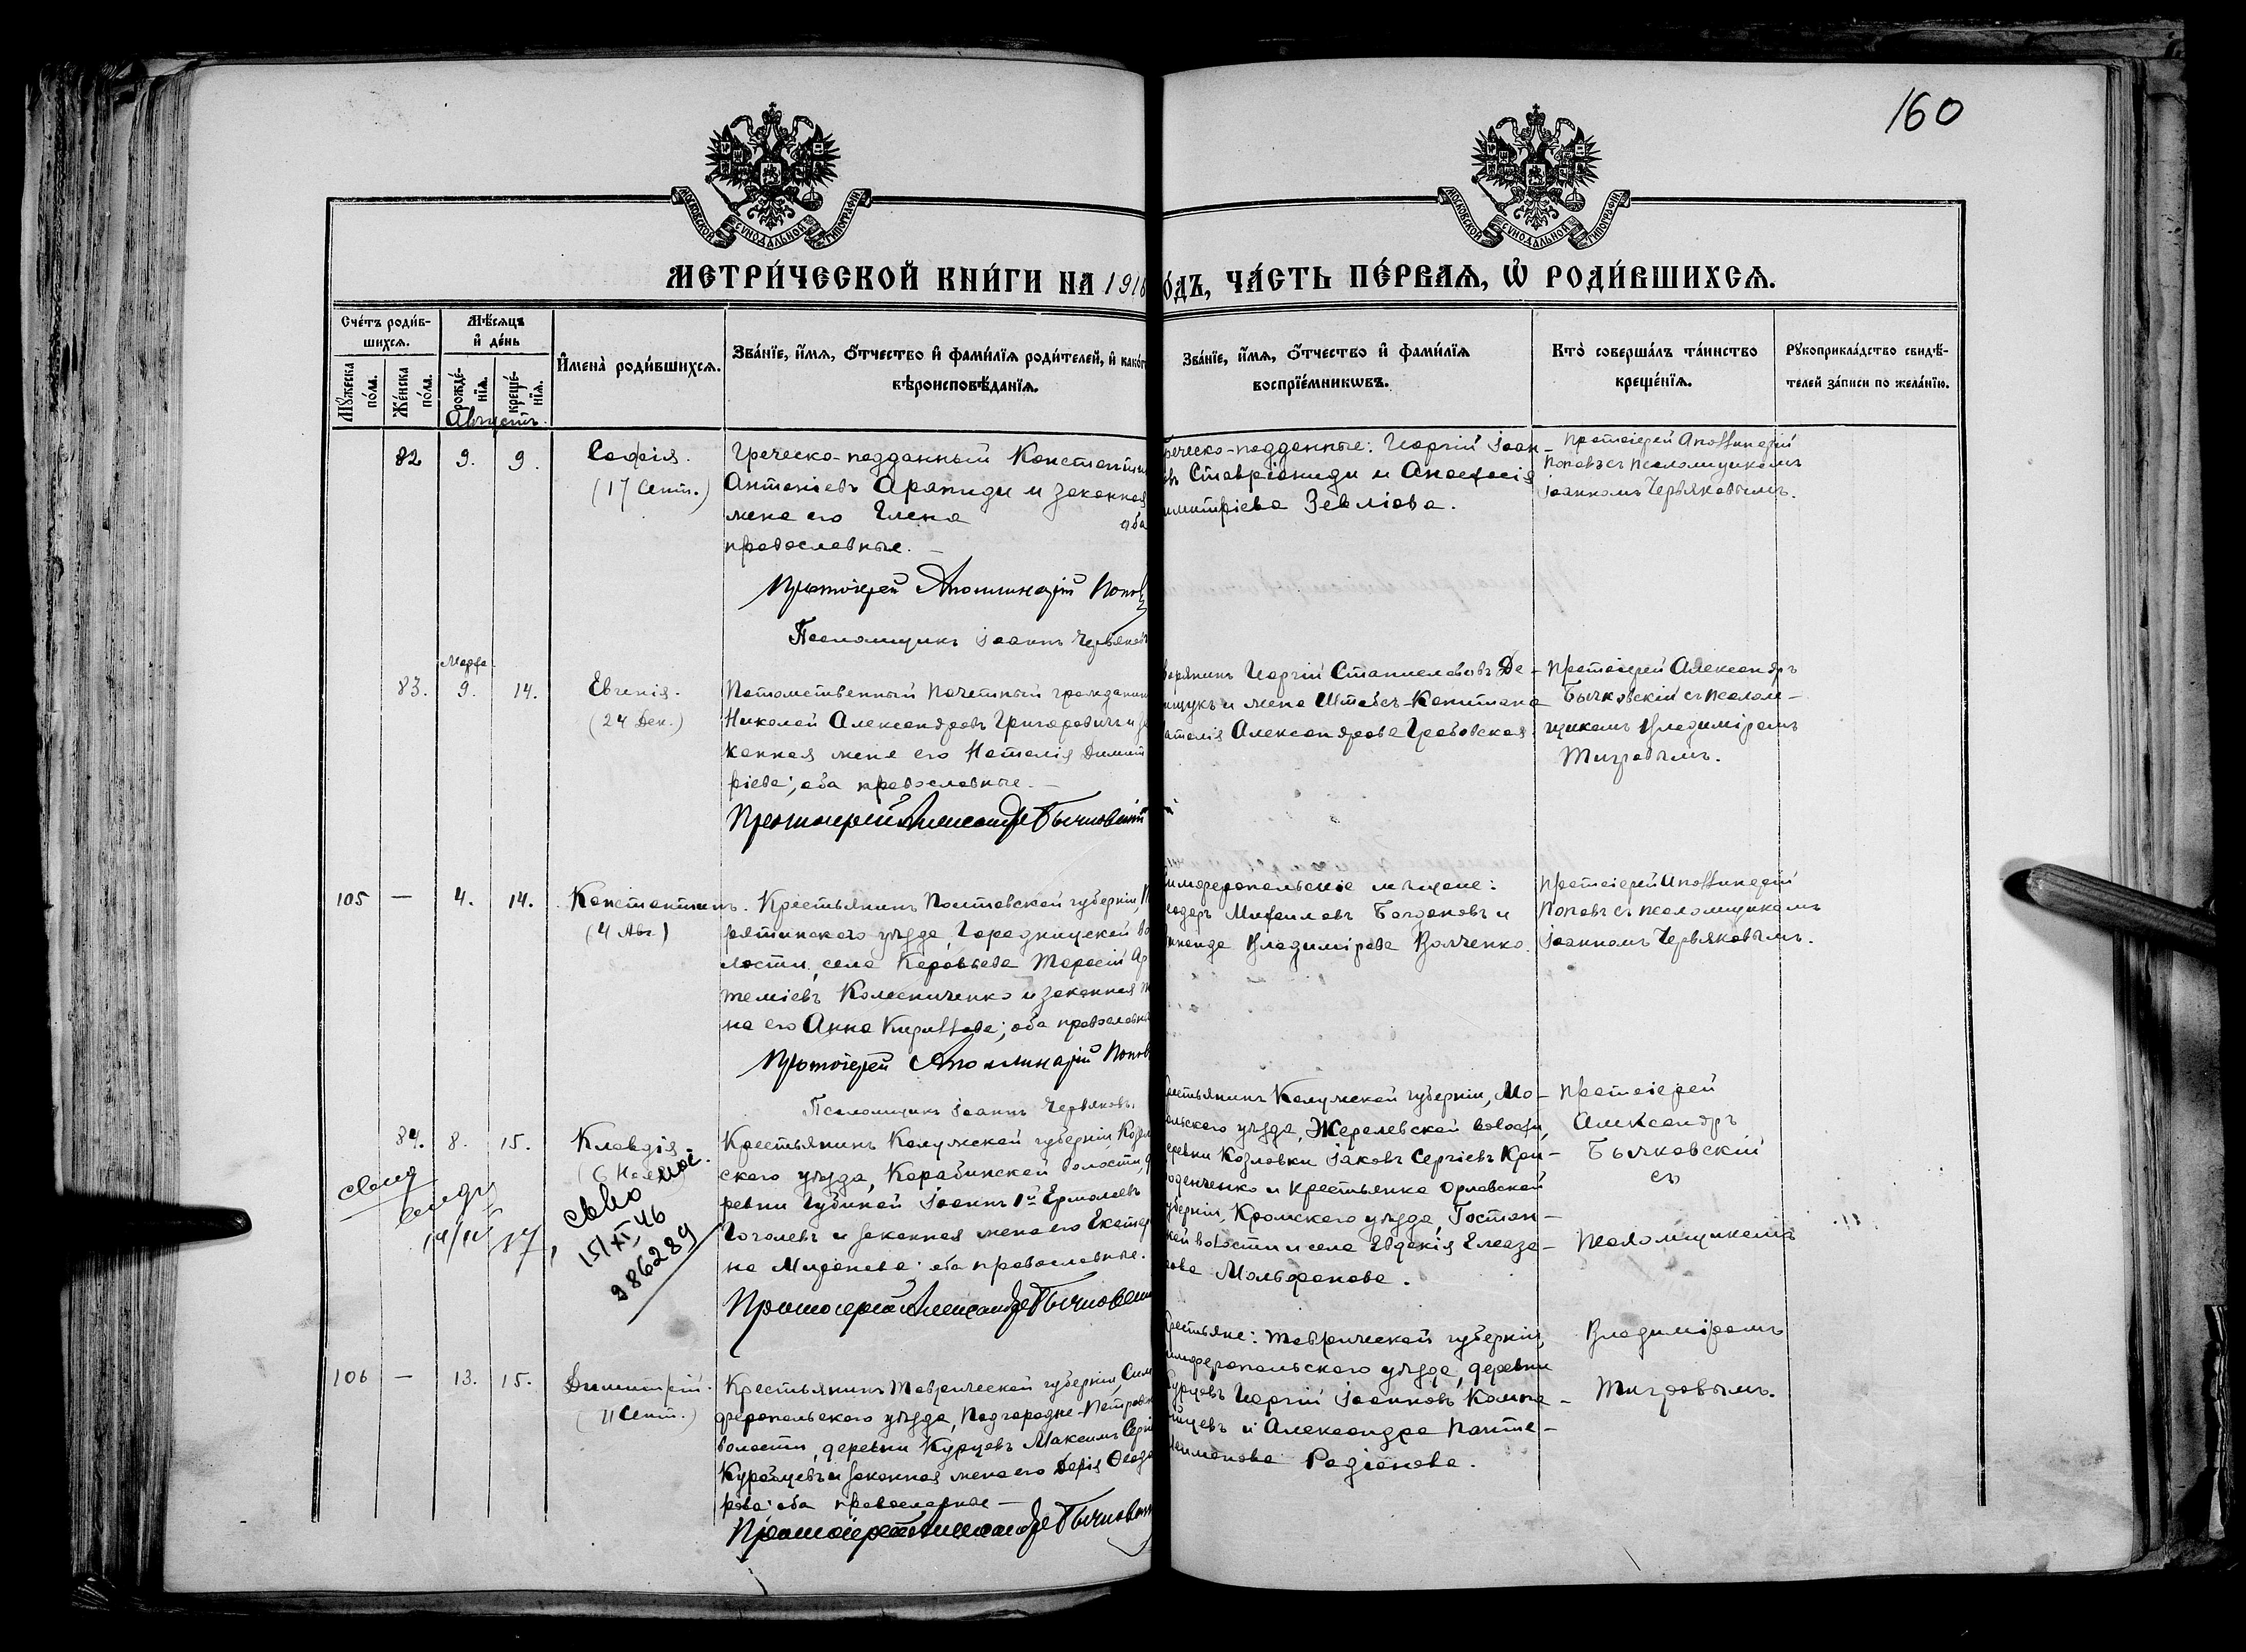 160
МОСКОВСКОЙ СѴНОДАЛЬНОЙ ТИПОГРАФІИ
МОСКОВСКОЙ СѴНОДАЛЬНОЙ ТИПОГРАФІИ
МЕТРИ́ЧЕСКОЙ КНИ́ГИ НА 1916
О́ДЪ, ЧА́СТЬ ПЕ́РВАѦ, Ѡ РОДИ́ВШИХСѦ.
Сче́тъ роди́в-
шихсѧ.
Мꙋ́жеска по́ла.
Же́нска по́ла.
Мѣ́сѧцъ
и҆ де́нь
рожде́-
нїѧ.
креще́-
нїѧ.
И҆мена̀ роди́вшихсѧ.
Зва́нїе, и҆́мѧ, ѻ҆́тчество и҆ фами́лїѧ роди́телей, и҆ како́г
вѣроисповѣ́данїѧ.
Зва́нїе, и҆́мѧ, ѻ҆́тчество и҆ фами́лїѧ
воспрїе́мникѡвъ.
Кто̀ соверша́лъ та́инство
креще́нїѧ.
Рꙋкоприкла́дство свидѣ́-
телей за́писи по жела́нїю.
Августъ.
82 9. 9. Софія.
(17 Сент.)
Греческо-подданный Константин
Антоніевъ Аряпиди и законная
жена его Елена оба
православные.
Протоіерей Аполлинарій Попов
Псаломщикъ Іоаннъ Червяковъ
реческо-подданные: Георгій Іоан-
въ Ставріаниди и Анастасія
имитріева Зевліова.
Протоіерей Аполлинарій
Поповъ съ псаломщикомъ
Іоанномъ Червяковымъ.
Марта
83. 9. 14. Евгенія.
(24 Дек.)
Потомственный Почетный гражданин
Николай Александровъ Григоровичъ и за
конная жена его Наталія Димит
ріева; оба православные.
Протоіерей Александръ Бычковскій
ворянинъ Георгій Станиславовъ Де-
ищукъ и жена Штабсъ-Капитана
аталія Александрова Грабовская
Протоіерей Александръ
Бычковскій съ псалом-
щикомъ Владиміромъ
Тигровымъ.
105 — 4. 14. Константинъ.
(4 Авг.)
Крестьянинъ Полтавской губерніи, П
рятинскаго уѣзда, Городищской во
лости, села Каравьева Тарасій Ар
теміевъ Колесниченко и законная ж
на его Анна Кириллова; оба православн
Протоіерей Аполлинарій Попов
Псаломщикъ Іоаннъ Червяковъ
имферопольскіе мѣщане:
Михаиловъ Богдановъ и
Владимірова Волченко.
Протоіерей Аполлинарій
Поповъ съ псаломщикомъ
Іоанномъ Червяковымъ.
84. 8. 15. Клавдія.
Крестьянинъ Калужской губерніи Козел
скаго уѣзда, Корабинской волости, д
ревни Губиной Іоаннъ 1й Ермолаевъ
Гоголевъ и законная жена его Екатер
на оба православные.
Протоіерей Александръ Бычковскі
рестьянинъ Калужской губерніи, Мо-
альскаго уѣзда, Жерелевской волости,
еревни Козловки Іаковъ Сергіевъ
и крестьянка Орловской
уберніи, Кромскаго уѣзда, Гостон-
кой волости и села Евдокія Елеаза-
рова.
Протоіерей
Александръ
Бычковскій
съ
псаломщикомъ
Владиміромъ
Тигровымъ.
св-во
15/XI 46
986289
106 — 13. 15. Димитрій.
(11 Сент.)
Крестьянинъ Таврической губерніи, Сим
феропольскаго уѣзда, Подгородне-Петровск
волости, деревни Курцовъ Максимъ Серги
и законная жена его Дарія Ѳеодо
рова; оба православные —
Протоіерей Александръ Бычковскі
рестьяне: Таврической губерніи,
имферопольскаго уѣзда, деревни
Курцовъ Георгій Іоанновъ Компа-
ицевъ и Александра Панте-
леимонова Радіонова.